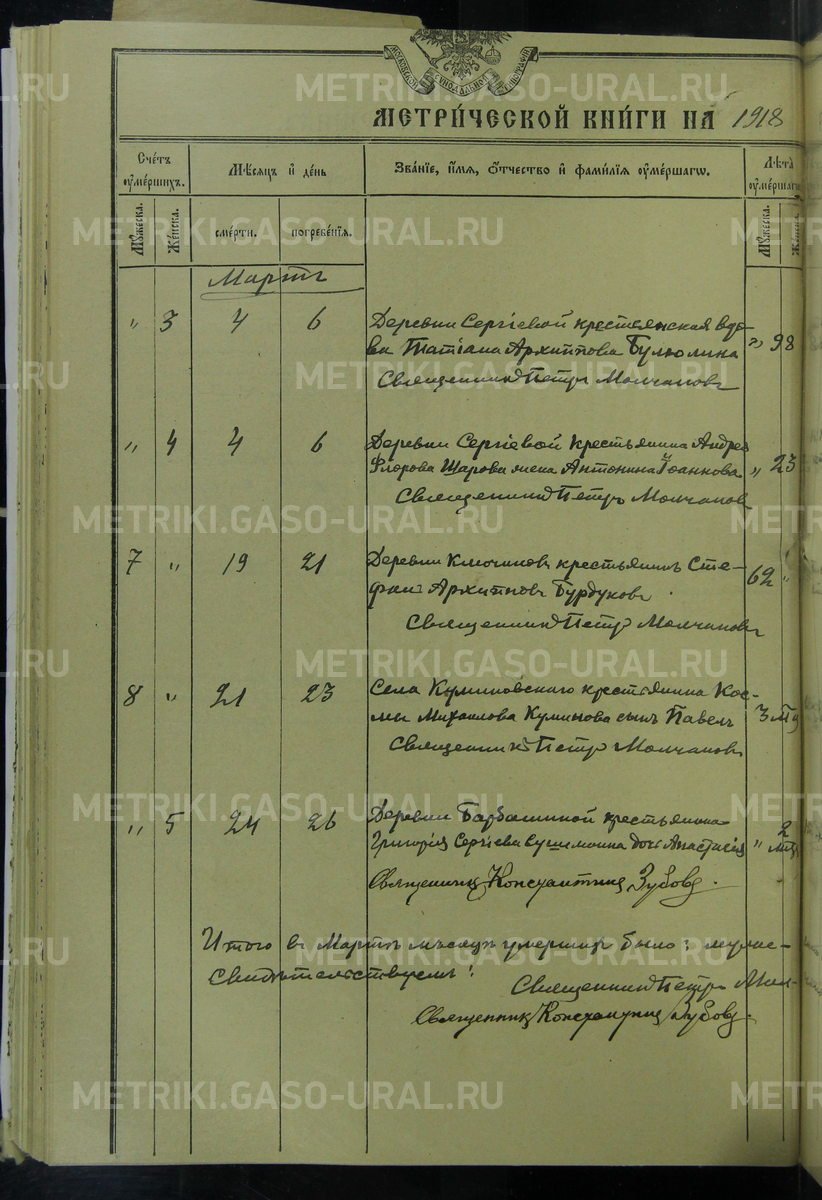 МОСКОВСКОЙ СѴНОДАЛЬНОЙ ТИПОГРАФІИ
МЕТРИ́ЧЕСКОЙ КНИ́ГИ НА 1918
Сче́тъ ᲂу҆ме́ршихъ.
Мѣ́сяцъ и҆ де́нь
Зва́нїе, и҆́мя, ѻ҆́тчество и҆ фамі́лїя ᲂу҆ме́ршагѡ.
Лѣта̀ ᲂу҆ме́ршаг
Мꙋ́жеска.
Же́нска.
сме́рти.
погребе́нїѧ.
Мꙋ́жеска.
Же́нск
Мартъ
" 3 4 6 Деревни Сергіевой крестьянская вдо-
ва Татіана Архиппова " 98
Священникъ Петръ Молчановъ
" 4 4 6 Деревни Сергіевой крестьянина Андрея
Флорова Щарова жена Антонина " 23
Священникъ Петръ Молчановъ
7 " 19 21 Деревни крестьянинъ Сте-
фанъ Архипповъ Бурдуковъ 62 "
Священникъ Петръ Молчановъ
8 " 21 23 Села Куминовскаго крестьянина Кос-
мы Михаилова Куминова сынъ Павелъ 3
Священникъ Петръ Молчановъ
" 5 24 26 Деревни Барбашиной крестьянина
Григорія Сергіева дочь Анастасія " 2
Священникъ Константинъ Зубовъ.
Итого въ Мартѣ мѣсяцѣ умершихъ было: мужес-
Свидѣтельствуемъ: Священникъ Петръ Мол-
Священникъ Константинъ Зубовъ.
METRIKI.GASO-URAL.RU